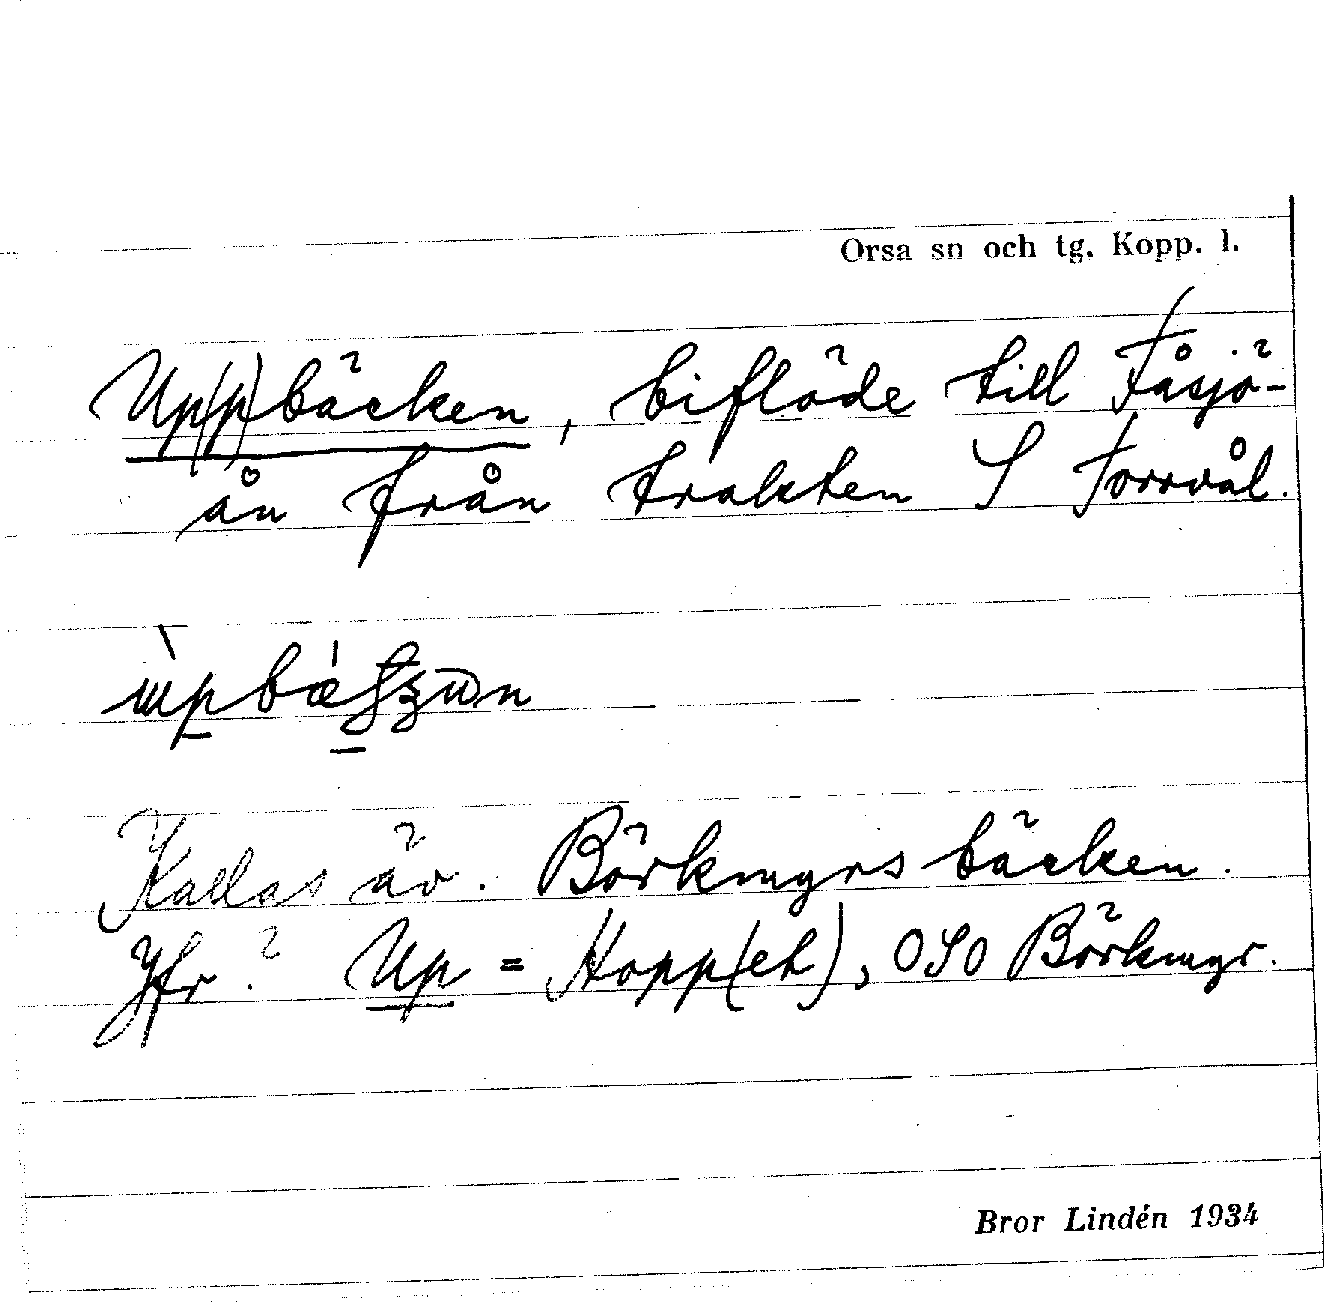 Orsa sn och tg. Kopp. l.
Up(p)bäcken, biflöde till Fåsjö-
ån från trakten S Torrvål.
Kallas äv. Börkmyrsbäcken.
Jfr? Up = Hopp(et), OSO Börkmyr.
Bror Lindén 1934